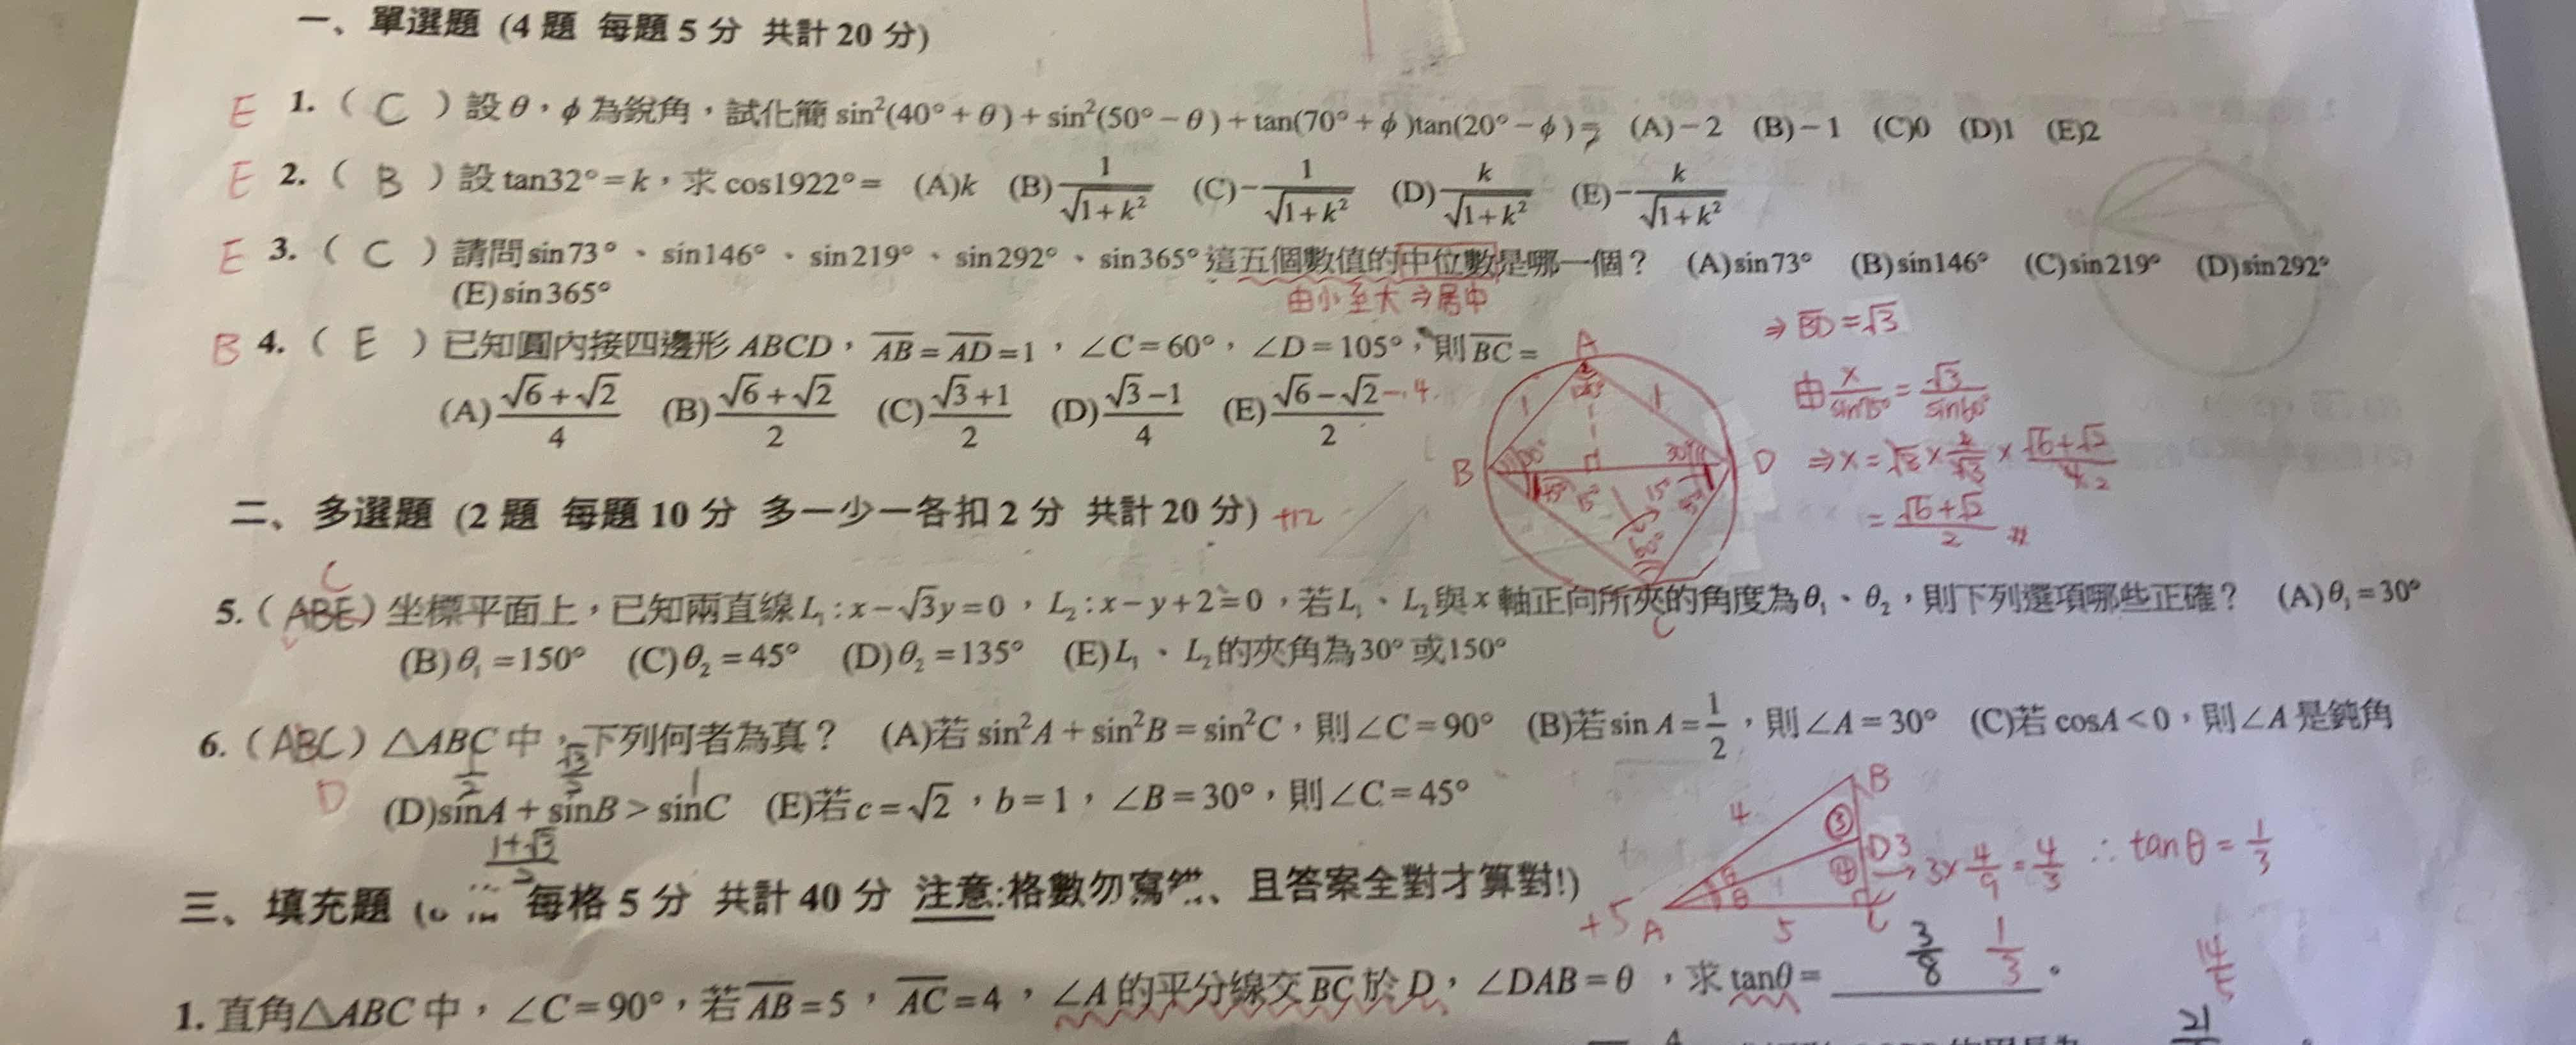 一、單選題 (4題 每題5分 共計20分)
E 1. ( C ) 設θ，ϕ為銳角，試化簡 sin²(40°+θ)+sin²(50°−θ)+tan(70°+ϕ)tan(20°−ϕ)= (A)−2 (B)−1 (C)0 (D)1 (E)2
E 2. ( B ) 設 tan32°=k，求 cos1922°= (A)k (B)1/√(1+k²) (C)−1/√(1+k²) (D)k/√(1+k²) (E)−k/√(1+k²)
E 3. ( C ) 請問sin73°、sin146°、sin219°、sin292°、sin365°這五個數值的中位數是哪一個？ (A)sin73° (B)sin146° (C)sin219° (D)sin292°
(E)sin365°
由小至大⇒居中
B 4. ( E ) 已知圓內接四邊形 ABCD，AB=AD=1，∠C=60°，∠D=105°，則BC=
(A)(√6+√2)/4 (B)(√6+√2)/2 (C)(√3+1)/2 (D)(√3−1)/4 (E)(√6−√2)/2
A
1
1
B
D
60°
⇒ BD=√3
由 x/sin75° = √3/sin60°
⇒ x=√3×2/√3×(√6+√2)/4 2
= (√6+√2)/2 #
二、多選題 (2題 每題10分 多一少一各扣2分 共計20分) +12
C
5. (ABE) 坐標平面上，已知兩直線L₁:x−√3y=0，L₂:x−y+2=0，若L₁、L₂與x軸正向所夾的角度為θ₁、θ₂，則下列選項哪些正確？ (A)θ₁=30°
(B)θ₁=150° (C)θ₂=45° (D)θ₂=135° (E)L₁、L₂的夾角為30°或150°
6. (ABC) △ABC中，下列何者為真？ (A)若 sin²A+sin²B=sin²C，則∠C=90° (B)若sinA=1/2，則∠A=30° (C)若cosA<0，則∠A是鈍角
D
1/2 √3/2 1
(D)sinA+sinB>sinC (E)若c=√2，b=1，∠B=30°，則∠C=45°
三、填充題 每格5分 共計40分 注意:格數勿寫、且答案全對才算對!)
B
4
③
D 3
④
→ 3×4/9=4/3 ∴ tanθ=1/3
θ
A
5
C
+5
1. 直角△ABC中，∠C=90°，若AB=5，AC=4，∠A的平分線交BC於D，∠DAB=θ，求tanθ= 3/8 1/3 。
21